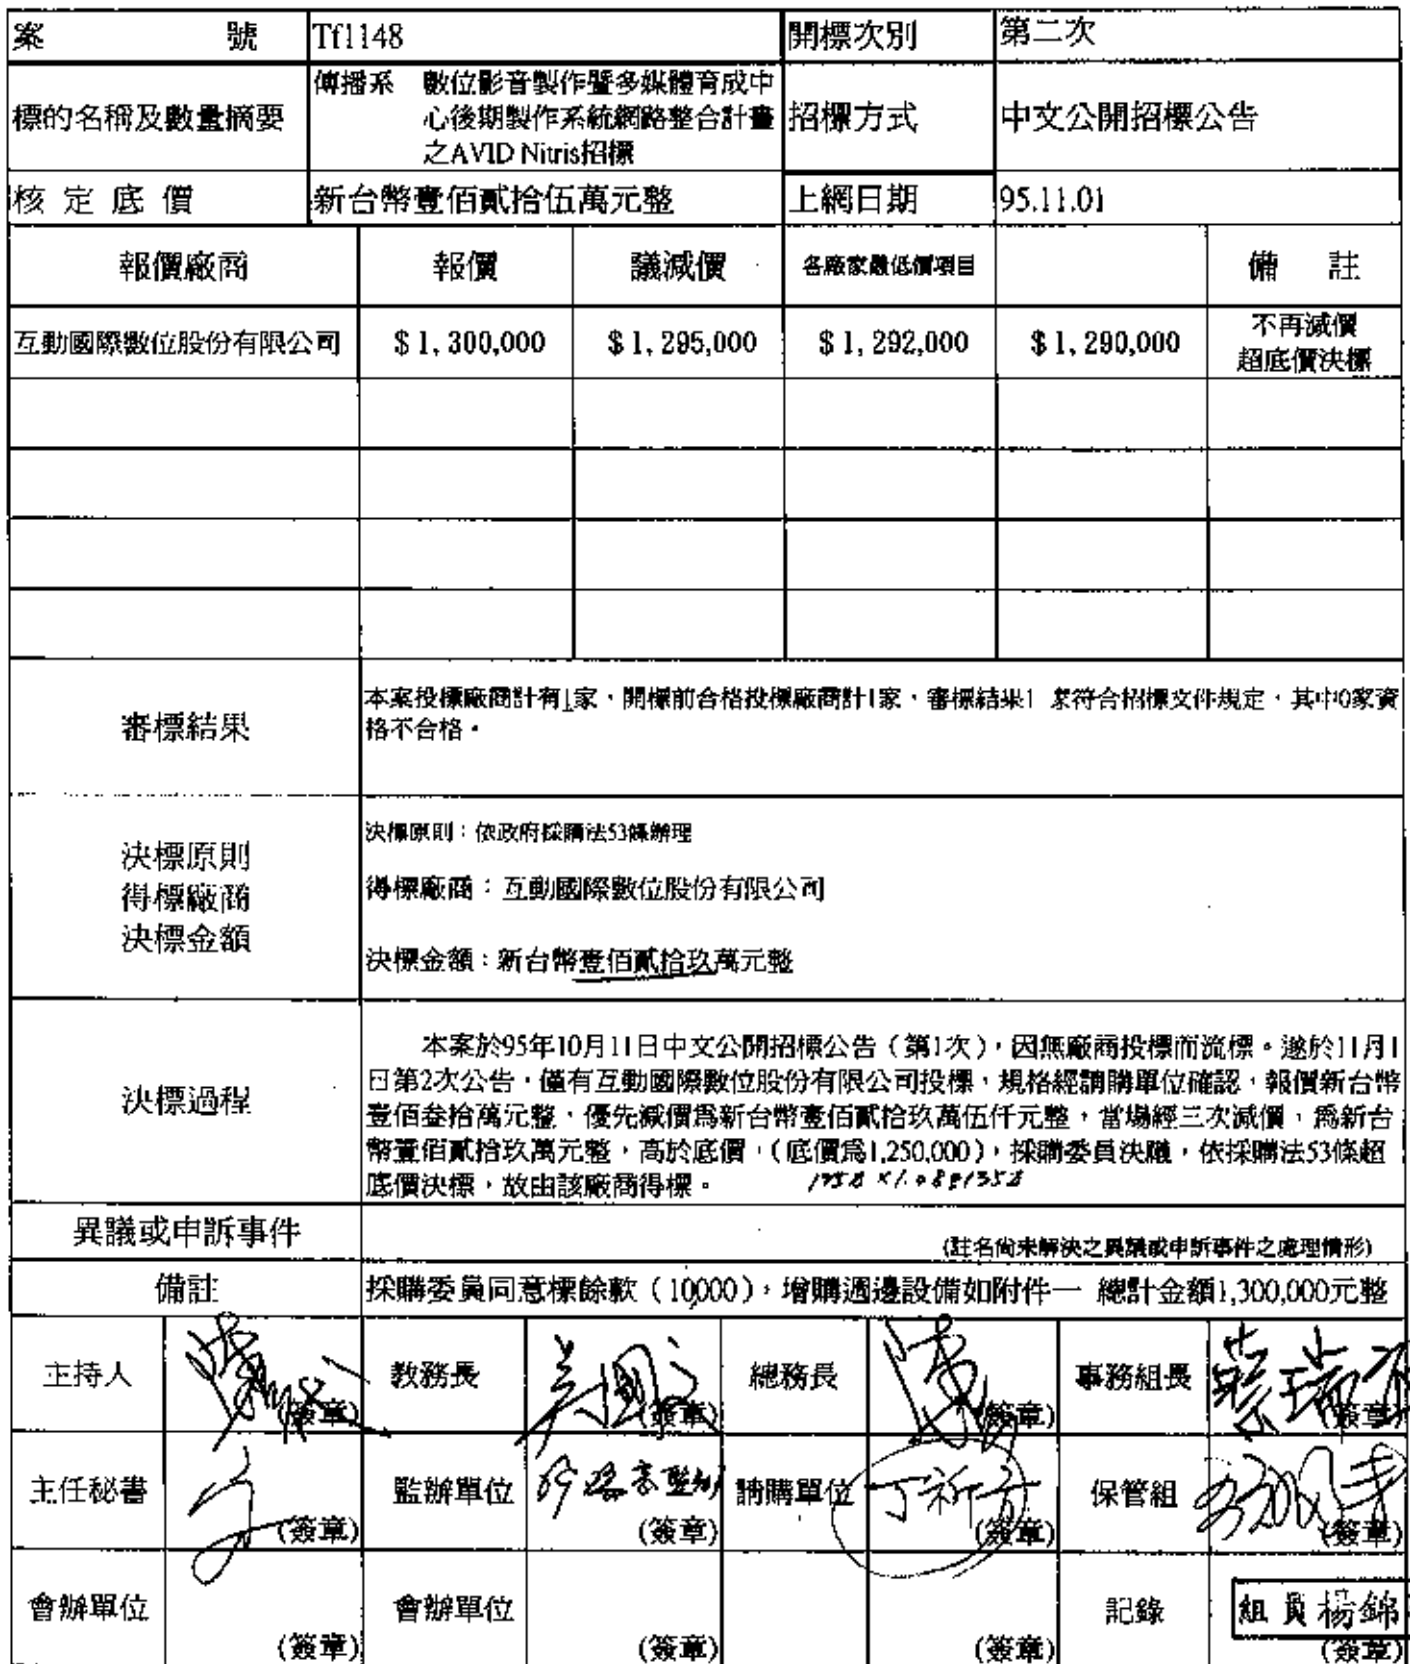 案 號 Tf1148 開標次別 第二次
標的名稱及數量摘要 傳播系 數位影音製作暨多媒體育成中
心後期製作系統網路整合計畫
之AVID Nitris招標
招標方式 中文公開招標公告
核定底價 新台幣壹佰貳拾伍萬元整 上網日期 95.11.01
報價廠商 報價 議減價 各廠家最低價項目 備 註
互動國際數位股份有限公司 $1,300,000 $1,295,000 $1,292,000 $1,290,000 不再減價
超底價決標
審標結果
本案投標廠商計有1家，開標前合格投標廠商計1家，審標結果1 家符合招標文件規定，其中0家資
格不合格。
決標原則
得標廠商
決標金額
決標原則：依政府採購法53條辦理
得標廠商：互動國際數位股份有限公司
決標金額：新台幣壹佰貳拾玖萬元整
決標過程
本案於95年10月11日中文公開招標公告（第1次），因無廠商投標而流標。遂於11月1
日第2次公告，僅有互動國際數位股份有限公司投標，規格經請購單位確認，報價新台幣
壹佰叁拾萬元整，優先減價為新台幣壹佰貳拾玖萬伍仟元整，當場經三次減價，為新台
幣壹佰貳拾玖萬元整，高於底價，（底價為1,250,000），採購委員決議，依採購法53條超
底價決標，故由該廠商得標。
異議或申訴事件 (註名尚未解決之異議或申訴事件之處理情形)
備註 採購委員同意標餘款（10,000），增購週邊設備如附件一 總計金額1,300,000元整
主持人 (簽章) 教務長 (簽章) 總務長 (簽章) 事務組長 (簽章)
主任秘書 (簽章) 監辦單位 (簽章) 請購單位 丁祈方 (簽章) 保管組 (簽章)
會辦單位 (簽章) 會辦單位 (簽章) (簽章) 記錄 組員楊錦 (簽章)